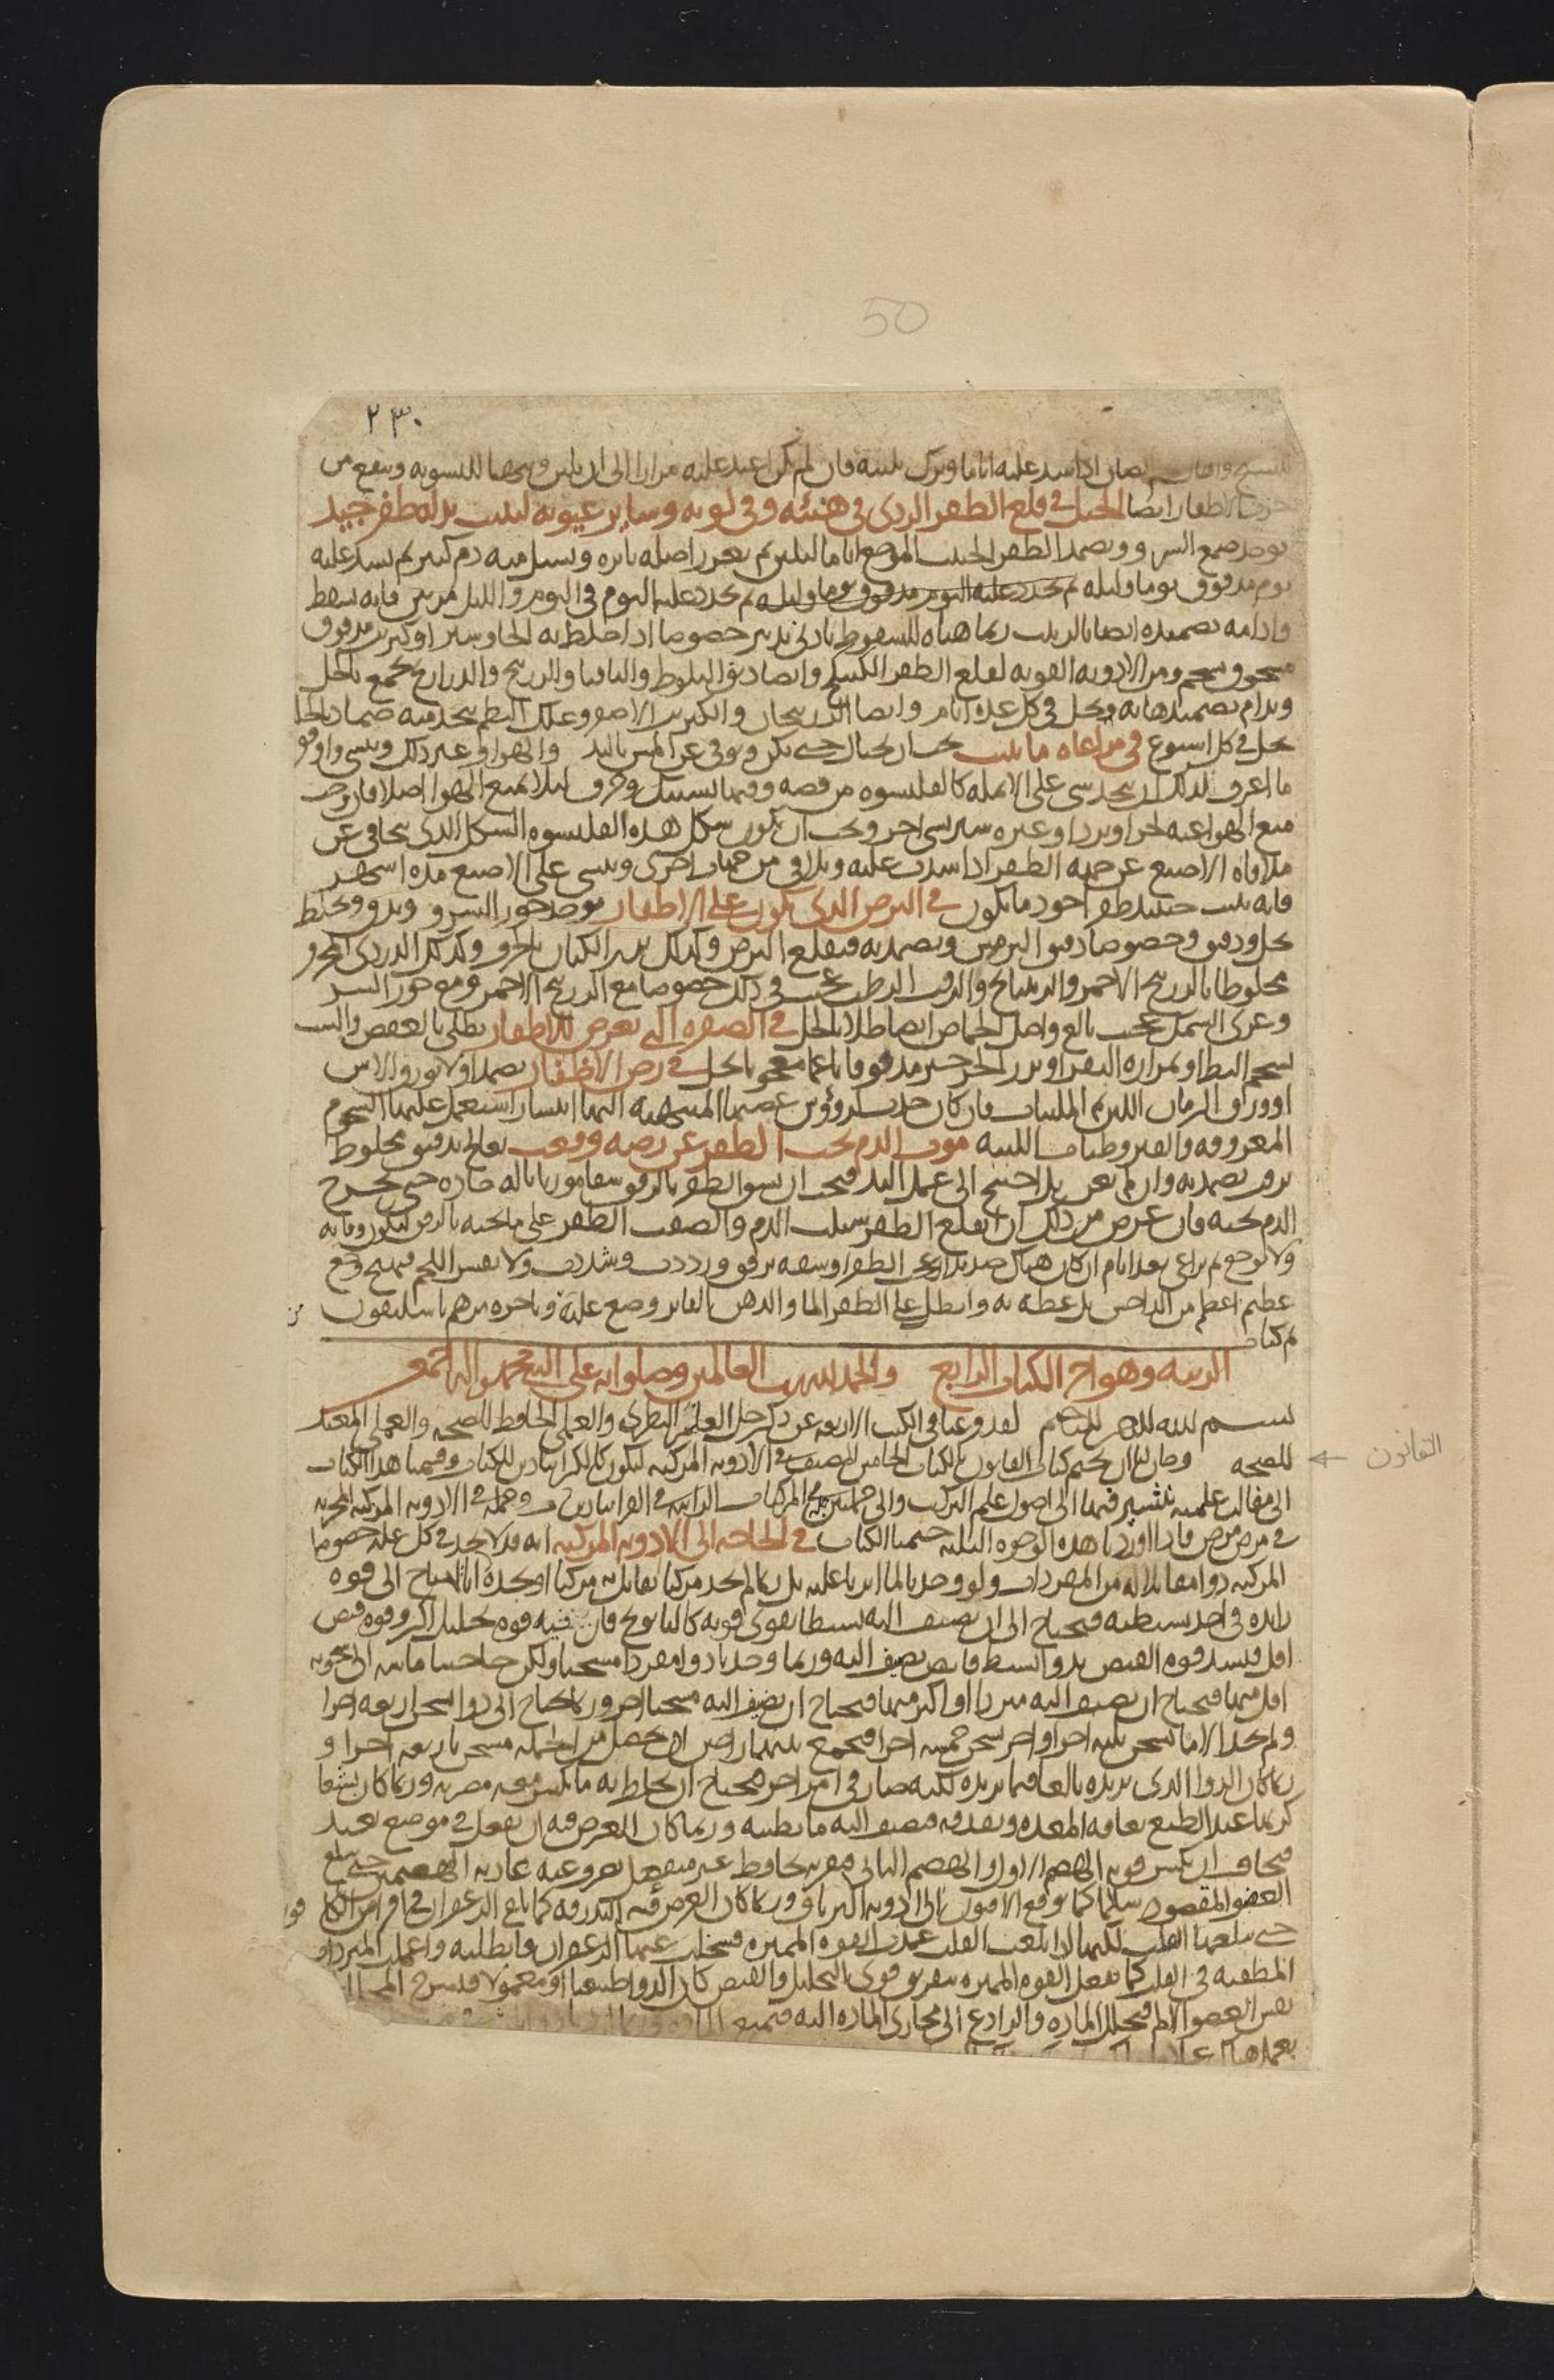 50
٢٣٠
اذا شد عليه اياما وترك بلينه فان لم يكن اعيد عليه مرارا الى ان يلين ويتهيا للتسويه وينفع من
الاظفار ايضا الحيل في قلع الظفر الردي في هيئته وفي لونه وساير عيوبه لينبت بدله ظفر جيد
يوخذ صمغ السرو ويضمد الظفر الخبيث الموضع اياما ليلين ثم يغرز اصله بابره ويسيل منه دم كثير ثم يشد عليه
ثوم مدقوق يوما وليله ثم يجدد عليه الثوم مدقوق يوما وليله ثم يجدد عليه الثوم في اليوم والليل مرتين فانه يسقط
وادامه تضميده ايضا بالزبيب ربما هياه للسقوط بادنى تدبير خصوصا اذا خلط به الجاوشير او كبريت مدقوق
مسحوق بشحم ومن الادويه القويه لقلع الظفر الكبيكج وايضا دبق البلوط والثافسيا والزرنيخ والذراريح يجمع بالخل
ويدام تضميدها به ويحل في كل عده ايام وايضا الزرنيخان والكبريت الاصفر وعلك البطم يتخذ منه ضماد بالخل
يحل في كل اسبوع في مراعاه ما ينبت يجب ان يحتال حتى يكن ويوقى عن المس باليد والهوا وغير ذلك وينسى واوفق
ما اعرف لذلك ان يتخذ شي على الانمله كالقلنسوه من فضه وفيها تشبيك وخرق ليلا يمنع الهوا اصلا فان وجب
منع الهوا عنه لحر او برد او غيره ستر بشي اخر ويجب ان يكون شكل هذه القلنسوه الشكل الذي يتجافى عن
ملاقاه الاصبع عن جهه الظفر اذا شدت عليه ويلاقي من جهات اخرى وينسى على الاصبع مده اشهر
فانه ينبت حينيذ ظفر اجود ما يكون في البرص الذي يكون على الاظفار يوخذ جوز السرو ويدق ويخلط
بخل ودقيق وخصوصا دقيق الترمس ويضمد به فيقلع البرص وكذلك بزر الكتان بالحرف وكذلك الدردي المحرق
مخلوطا بالزرنيخ الاحمر والراتينج والزفت الرطب عجيب في ذلك خصوصا مع الزرنيخ الاحمر ومع جوز السرو
وغرى السمك عجيب بالغ واصل الحماض ايضا طلا بالخل في الصفره التي تعرض للاظفار يطلى بالعفص والشب
بشحم البط او بمراره البقر او بزر الجرجير مدقوقا ناعما معجونا بخل في رض الاظفار يضمد اولا بورق الاس
او ورق الرمان اللين ثم الملينات فان كان حدث لرووس عصبها المنتهيه اليها انتشار استعمل عليها الشحوم
المعروفه والقيروطيات اللينه موت الدم تحت الظفر عن رضه وقعت يعالج بدقيق مخلوط
بزفت يضمد به وان لم يغن بل احتيج الى عمل اليد فيجب ان يشق الظفر بالرفق شقا موربا باله حاده حتى يخرج
الدم تحته فان عرض من ذلك ان انقلع الظفر سيلت الدم والصقت الظفر على ما تحته بالرفق ليكون وقايه
ولا توجع ثم تراعى بعد ايام ان كان هناك صديد الظفر او شقه برفق ورددت وشددت ولا يمس اللحم فيهيج وجع
عظيم اعظم من الداحس بل غطه به وانطل على الظفر الما والدهن الفاتر وضع عليه وباخره مرهم باسليقون
تم كتاب
الزينه وهو اخر الكتاب الرابع والحمد لله رب العالمين وصلواته على النبي محمد واله اجمعين
بسم الله الرحمن الرحيم لقد فرغنا في الكتب الاربعه عن ذكر جل العلم النظري والعلمي الحافظ للصحه والعملي المعيد
للصحه وحان لنا ان نختم كتابي القانون بالكتاب الخامس المصنف في الادويه المركبه ليكون كالاقراباذين للكتاب وقسمنا هذا الكتاب
الى مقاله علميه نشير فيها الى اصول علم التركيب والى جملتين جمله في المركبات الراتبه في القراباذينات وجمله في الادويه المركبه المجربه
في مرض مرض فاذا اوردنا هذه الوجوه الثلثه ختمنا الكتاب في الحاجه الى الادويه المركبه انه قد لا نجد في كل عله خصوصا
المركبه دوا مقابلا له من المفردات ولو وجدنا لما اثرنا عليه بل ربما لم نجد مركبا نقابل به مركبا او نجده الا انا نحتاج الى قوه
زايده في احد بسيطيه فنحتاج الى ان نضيف اليه بسيطا يقوي قوته كالبابونج فان فيه قوه تحليل اكثر وقوه قبض
اقل فيشد قوه القبض بدوا بسيط قابض نضيف اليه وربما وجدنا دوا مفردا مسخنا ولكن حاجتنا ماسه الى سخونه
اقل منها فنحتاج ان نضيف اليه مبردا او اكثر منها فنحتاج ان نضيف اليه مسخنا اخر وربما نحتاج الى دوا يسخن اربعه اجزا
ولم نجد الا ما يسخن ثلثه اجزا واخر يسخن خمسه اجزا فنجمع بينهما راجين ان يحصل من الجمله مسخن باربعه اجزا و
ربما كان الدوا الذي نريده بالغا فيما نريده لكنه ضار في امر اخر فنحتاج ان نخلط به ما يكسر معه مضرته وربما كان بشعا
كريها عند الطبع تعافه المعده وتقذفه فنضيف اليه ما يطيبه وربما كان الغرض فيه ان يفعل في موضع بعيد
فنخاف ان يكسر قوته الهضم الاول والهضم الثاني فنقرنه بحافظ غير منفعل يصرف عنه عاديه الهضمين حتى يبلغ
العضو المقصود سالما كما يوقع الافيون في الادويه الترياق وربما كان الغرض فيه البدرقه كما يلقى الزعفران في اقراص الكافور
حتى يبلغها القلب لكنها اذا بلغت القلب عملت القوه المميزه فسخلت عنها الزعفران فابطلته واعملت المبردات
المطفيه في القلب كما تفعل القوه المميزه بتفريق قوى التحليل والقبض كان الدوا طبيعيا او معمولا فتسرح المحلل
نفس العضو الالم فيحلل الماده والرادع الى مجاري الماده اليه فيمنع
القانون